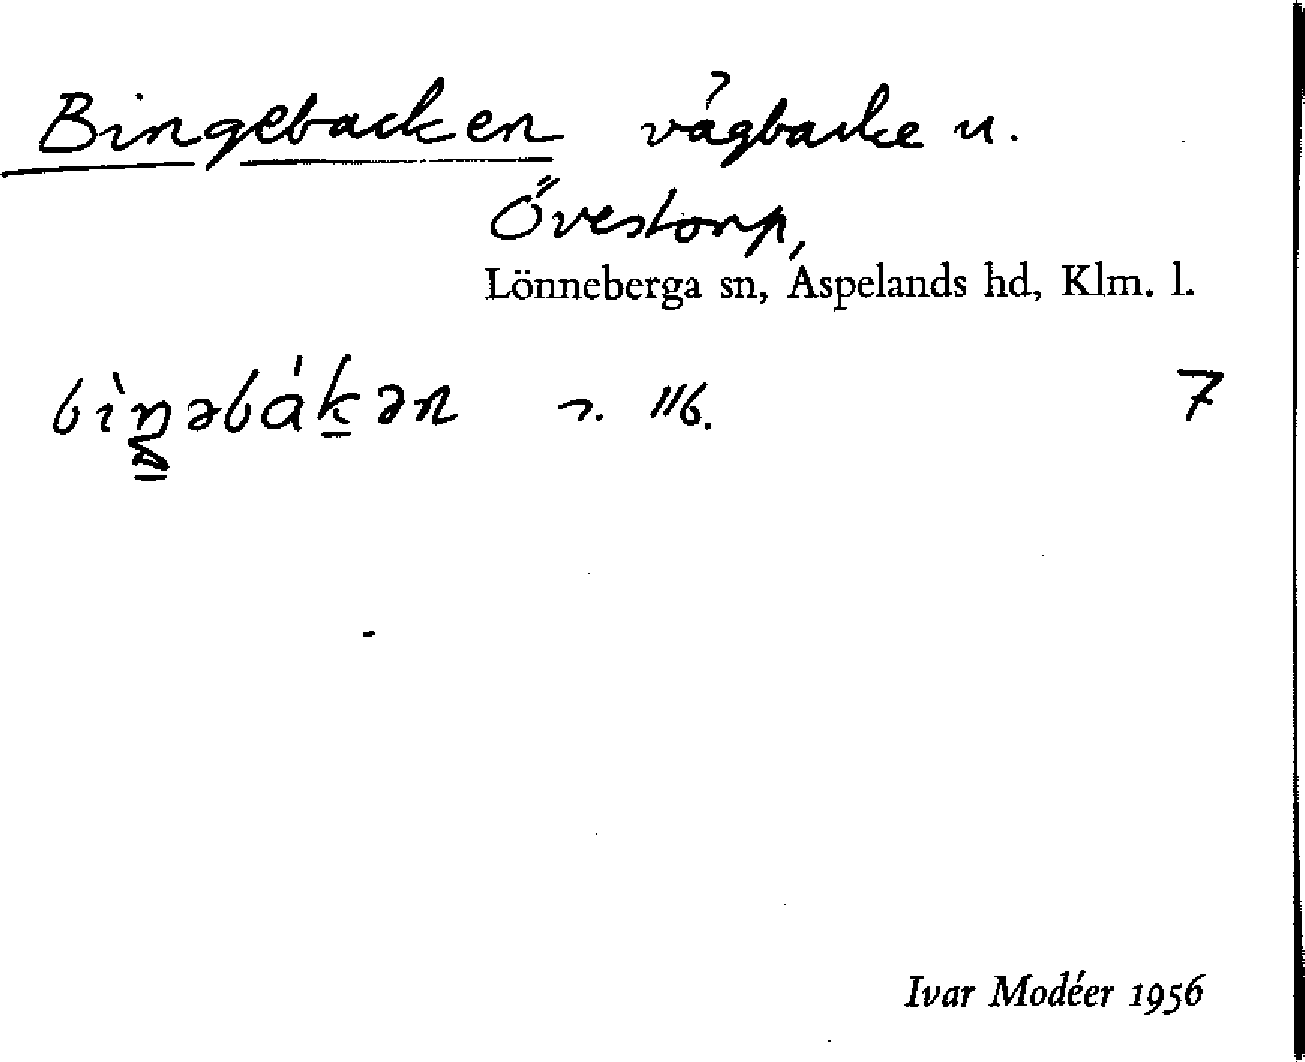 Bingebacken vägbacke n.
Övestorp,
Lönneberga sn, Aspelands hd, Klm. l.
bìŋəbákən 7
Ivar Modéer 1956